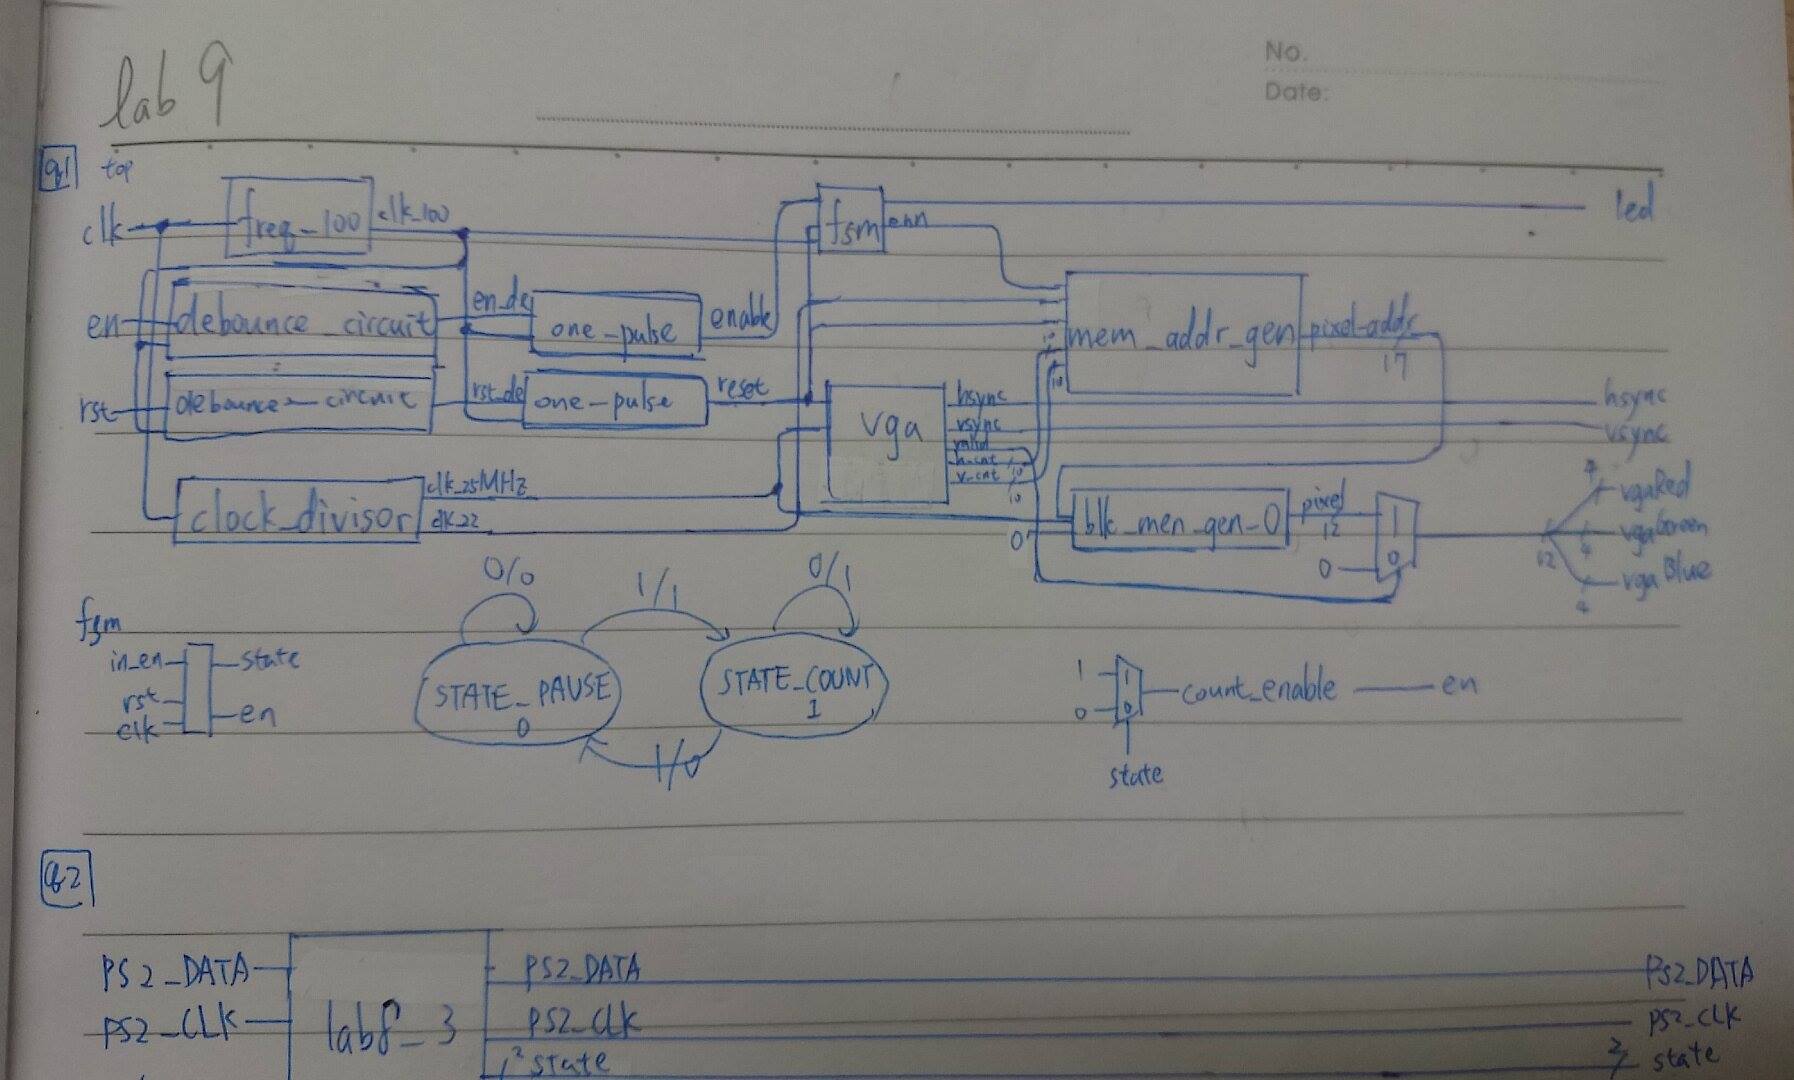 No.
Date:
lab 9
q1 top
clk freq_100 clk_100 fsm enn led
en debounce_circuit en_de one_pulse enable mem_addr_gen pixel_addr 17
10
10
rst debounce_circuit rst_de one_pulse reset vga
hsync hsync
vsync vsync
valid
h_cnt 10
v_cnt 10
clock_divisor clk_25MHz
clk_22
0 blk_men_gen_0 pixel 12 1
0 0
12 4 vgaRed
4 vgaGreen
4 vgaBlue
fsm
in_en state
rst
clk en
0/0 1/1 0/1
STATE_PAUSE
0
STATE_COUNT
1
1/0
1 1
0 0 count_enable en
state
q2
PS2_DATA PS2_DATA PS2_DATA
PS2_CLK lab8_3 PS2_CLK PS2_CLK
2 state 2 state